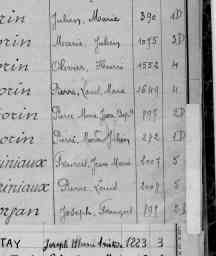 orin Julien, Marie 390 1D
orin Marie, Julien 1075 3D
orin Olivier, Henri 1552 4
orin Pierre, Louis, Marie 1649 4
orin Pierre Marie, Jean 2D
orin Pierre, Marie, Julien 272 1D
iniaux Francois, Jean Marie 2007 5
iniaux Pierre Louis 2007 5
organ Joseph, François
TAY Joseph Marie 1223 3